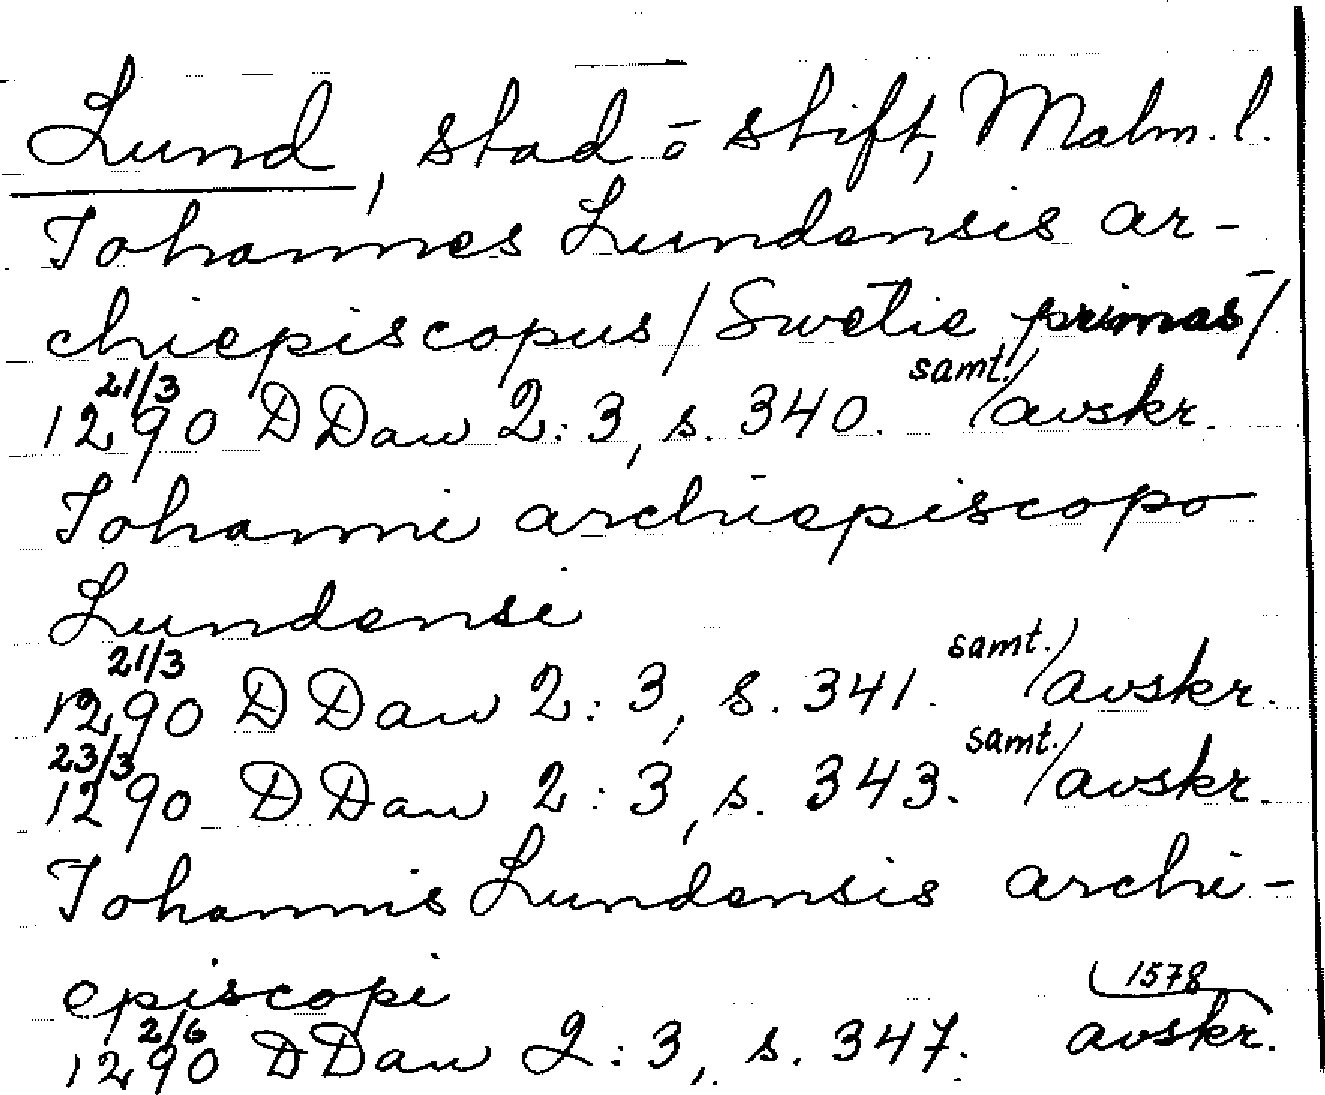 Lund, stad o stift, Malm. l.
Iohannes Lundensis ar-
chiepiscopus / Swetie primas /
1290 21/3 DDan 2:3, s. 340. samt. / avskr.
Iohanni archiepiscopo
Lundensi
1290 21/3 DDan 2:3, s. 341. samt. / avskr.
1290 23/3 DDan 2:3, s. 343. samt. / avskr.
Iohannis Lundensis archi-
episcopi
1290 2/6 DDan 2:3, s. 347. 1578 avskr.